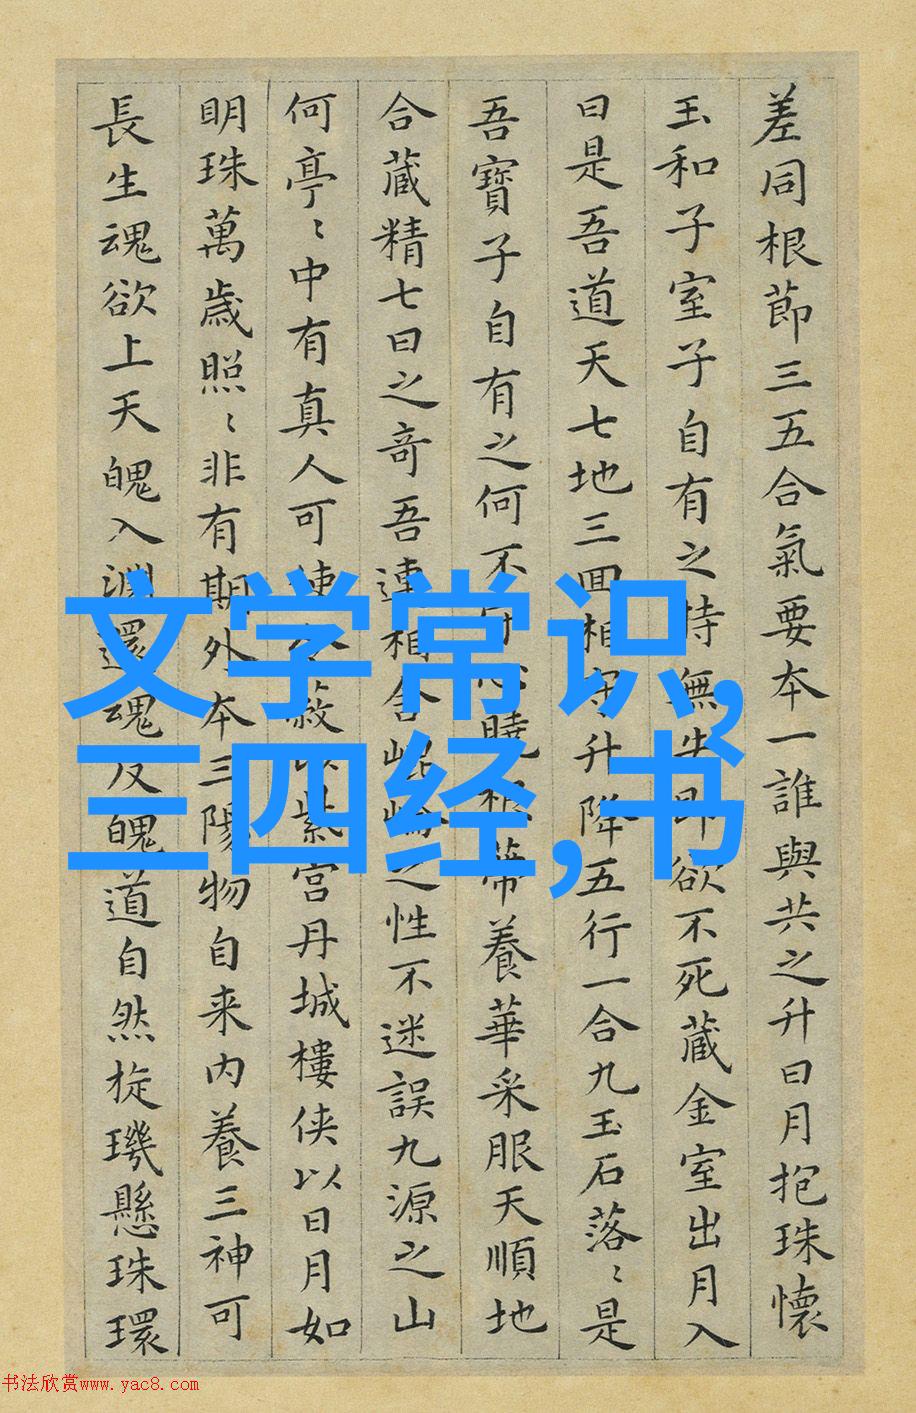 差同根節三五合氣要本一誰與共之升日月抱珠懷
玉和子室子自有之持無失即欲不死藏金室出月入
日是吾道天七地三回相守升降五行一合九玉石落〻是
吾寶子自有之何不心曉根蒂養華采服天順地
合藏精七日之奇吾連相合崐崘之性不迷誤九源之山
何亭〻中有真人可使蔽以紫宫丹城樓侠以日月如
明珠萬歳照〻非有期外本三陽物自来内養三神可
長生魂欲上天魄入淵還魂反魄道自然旋璣懸珠環
文学常识,
三四经,书
书法欣赏www.yac8.com